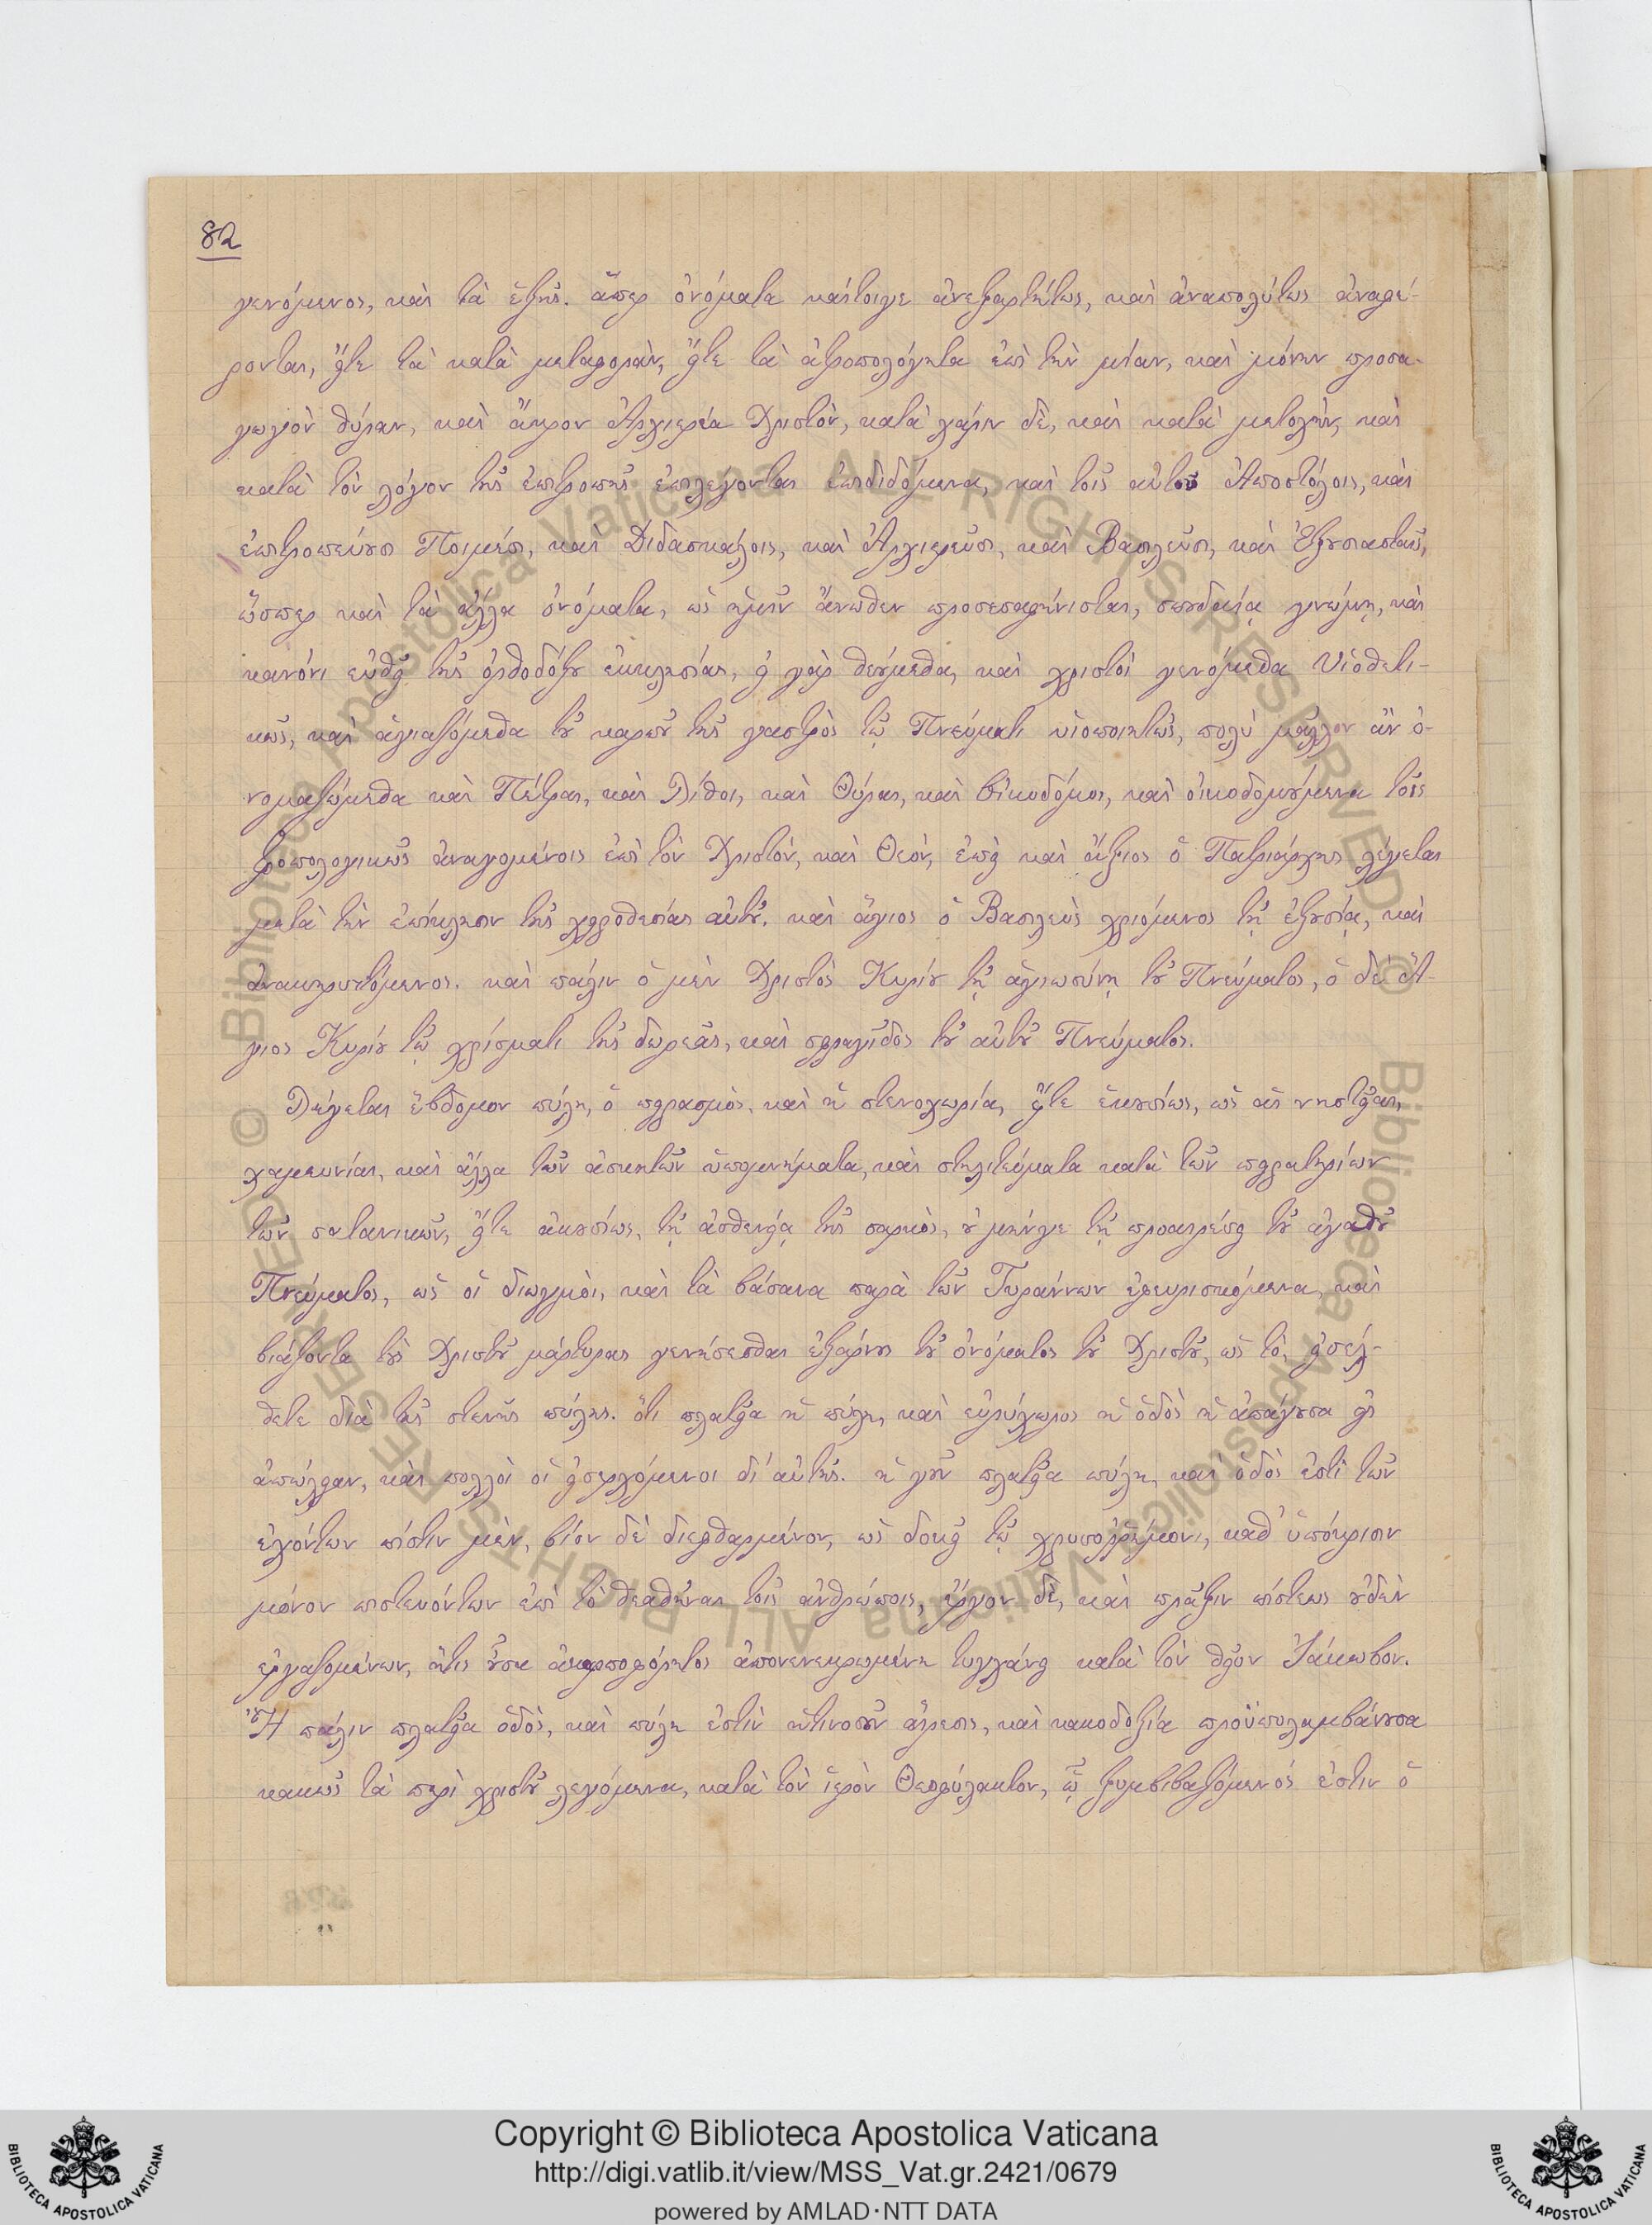 82
γενόμενος, καὶ τὰ ἑξῆς. ἅπερ ὀνόματα καίτοιγε ἀνεξαρτήτως, καὶ ἀναπολύτως ἀναφέ-
ρονται, εἴτε τὰ κατὰ μεταφορὰν, εἴτε τὰ ἀτροπολόγητα ἐπὶ τὴν μίαν, καὶ μόνην προσα-
γωγὸν θύραν, καὶ ἄκρον Ἀρχιερέα Χριστὸν, κατὰ χάριν δὲ, καὶ κατὰ μετοχὴν, καὶ
κατὰ τὸν λόγον τῆς ἐπιτροπῆς ἐπιλέγονται ἐπιδιδόμενα, καὶ τοῖς αὐτοῦ Ἀποστόλοις, καὶ
ἐπιτροπεύουσι Ποιμέσι, καὶ Διδασκάλοις, καὶ Ἀρχιερεῦσι, καὶ Βασιλεῦσι, καὶ Ἐξουσιασταῖς,
ὥσπερ καὶ τὰ ἄλλα ὀνόματα, ὡς ἡμῖν ἄνωθεν προσεσαφήνισται, σπουδαίᾳ γνώμῃ, καὶ
κανόνι εὐθεῖ τῆς ὀρθοδόξου ἐκκλησίας, εἰ γὰρ θεούμεθα, καὶ χριστοὶ γενόμεθα Υἱοθετι-
κῶς, καὶ ἁγιαζόμεθα τοῦ καρποῦ τῆς γαστρὸς τῷ Πνεύματι υἱοποιητῶς, πολὺ μᾶλλον ἂν ὀ-
νομαζώμεθα καὶ Πέτραι, καὶ Λίθοι, καὶ Θύραι, καὶ Οἰκοδόμοι, καὶ οἰκοδομούμενα τοῖς
τροπολογικῶς ἀναγομένοις ἐπὶ τὸν Χριστὸν, καὶ Θεὸν, ἐπεὶ καὶ ἄξιος ὁ Πατριάρχης λέγεται
μετὰ τὴν ἐπίκλησιν τῆς χειροθεσίας αὐτοῦ. καὶ ἅγιος ὁ Βασιλεὺς χριόμενος τῇ ἐξουσίᾳ, καὶ
ἀνακηρυττόμενος. καὶ πάλιν ὁ μὲν Χριστὸς Κυρίου τῇ ἁγιωσύνῃ τοῦ Πνεύματος, ὁ δὲ Ἅ-
γιος Κυρίου τῷ χρίσματι τῆς δωρεᾶς, καὶ σφραγῖδος τοῦ αὐτοῦ Πνεύματος.
Λέγεται ἕβδομον πύλη, ὁ πειρασμὸς, καὶ ἡ στενοχωρία, εἴτε ἑκουσίως, ὡς αἱ νηστεῖαι,
χαμευνίαι, καὶ ἄλλα τῶν ἀσκητῶν ὑπομνήματα, καὶ στηλιτεύματα κατὰ τῶν πειρατηρίων
τῶν σατανικῶν, εἴτε ἀκουσίως, τῇ ἀσθενείᾳ τῆς σαρκὸς, οὐ μήνγε τῇ προαιρέσει τοῦ ἀγαθοῦ
Πνεύματος, ὡς οἱ διωγμοὶ, καὶ τὰ βάσανα παρὰ τῶν Τυράννων ἐφευρισκόμενα, καὶ
βιάζοντα τοὺς Χριστοῦ μάρτυρας γενήσεσθαι ἐξάρνους τοῦ ὀνόματος τοῦ Χριστοῦ, ὡς τὸ, εἰσέλ-
θετε διὰ τῆς στενῆς πύλης. ὅτι πλατεῖα ἡ πύλη, καὶ εὐρύχωρος ἡ ὁδὸς ἡ ἀπάγουσα εἰς
ἀπώλειαν, καὶ πολλοὶ οἱ εἰσερχόμενοι δι᾽ αὐτῆς. ἡ γοῦν πλατεῖα πύλη, καὶ ὁδὸς ἐστὶ τῶν
ἐχόντων πίστιν μὲν, βίον δὲ διεφθαρμένον, ὡς δοκεῖ τῷ χρυσοῤῥήμονι, καθ᾽ ὑπόκρισιν
μόνον πιστευόντων ἐπὶ τὸ θεαθῆναι τοῖς ἀνθρώποις, ἔργον δὲ, καὶ πρᾶξιν πίστεως οὐδὲν
ἐργαζομένων, ἥτις οὖσα ἀκαρποφόρητος ἀπονενεκρωμένη τυγχάνει κατὰ τὸν θεῖον Ἰάκωβον.
Ἢ πάλιν πλατεῖα ὁδὸς, καὶ πύλη ἐστὶν ἡτινοσοῦν αἵρεσις, καὶ κακοδοξία προϋπολαμβάνουσα
κακῶς τὰ περὶ χριστοῦ λεγόμενα, κατὰ τὸν ἱερὸν Θεοφύλακτον, ᾧ ξυμβιβαζόμενός ἐστιν ὁ
© Biblioteca Apostolica Vaticana ALL RIGHTS RESERVED
© Biblioteca Apostolica Vaticana ALL RIGHTS RESERVED
Copyright © Biblioteca Apostolica Vaticana
http://digi.vatlib.it/view/MSS_Vat.gr.2421/0679
powered by AMLAD·NTT DATA
BIBLIOTECA APOSTOLICA VATICANA
BIBLIOTECA APOSTOLICA VATICANA